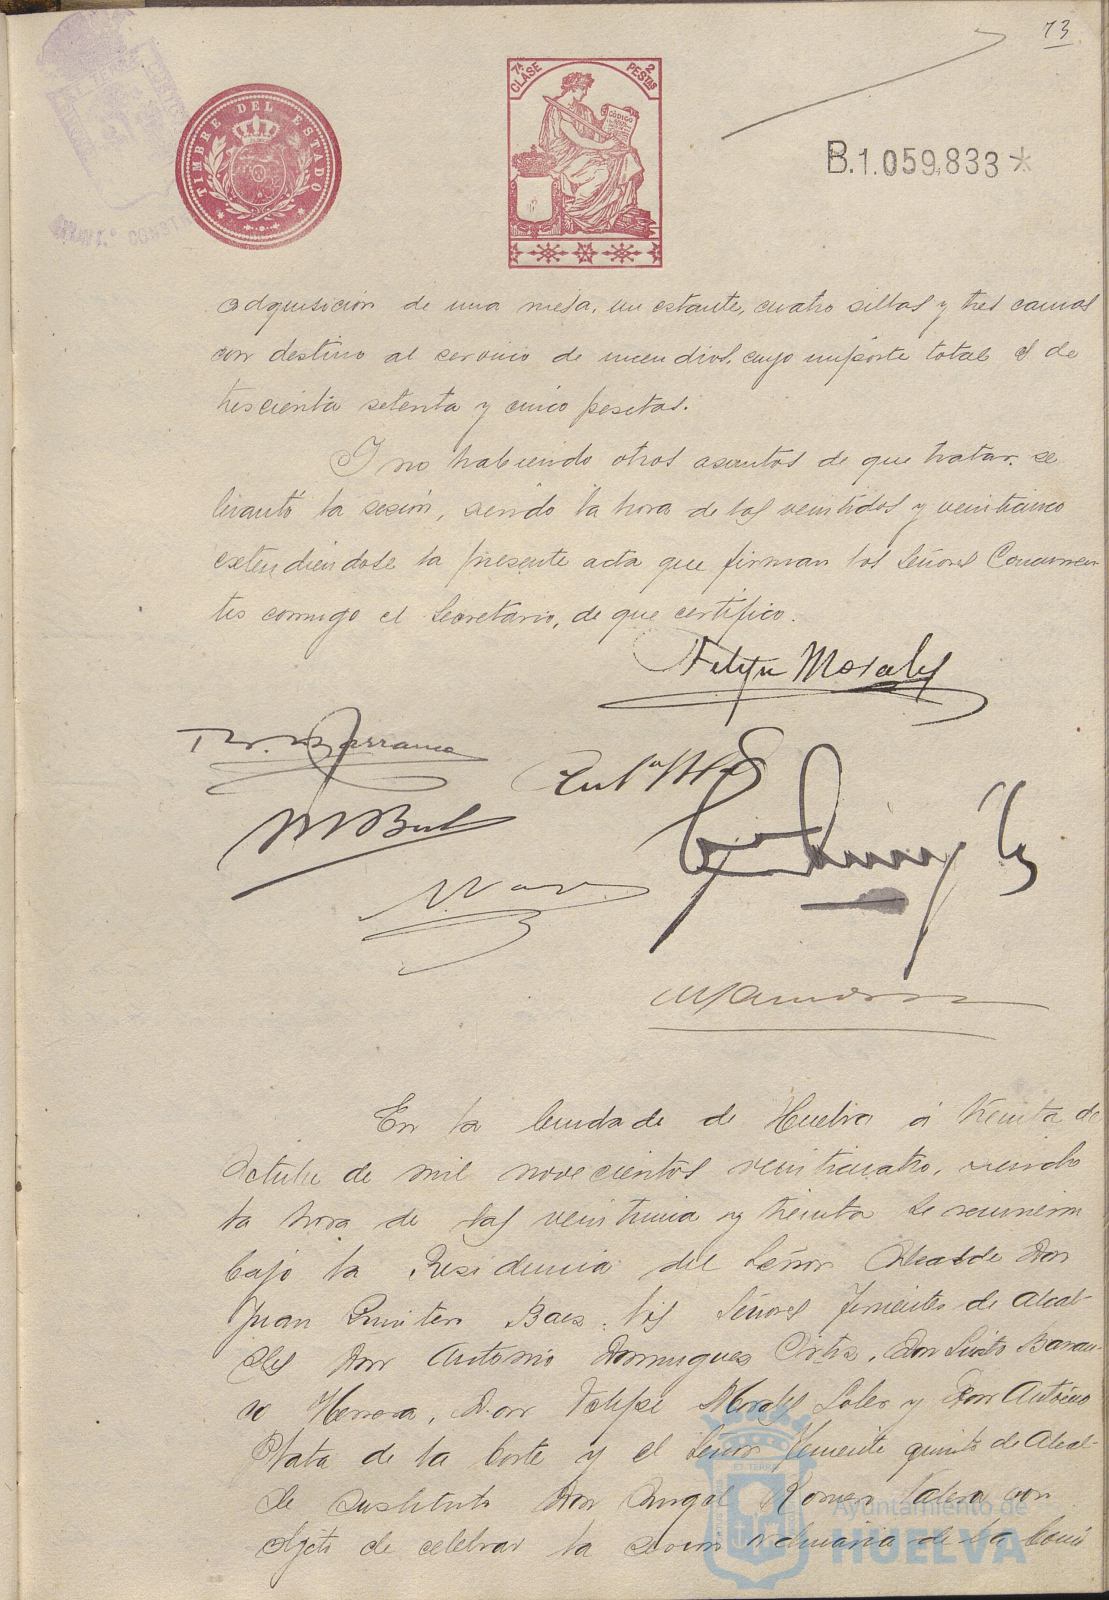 73
TIMBRE DEL ESTADO
7ª CLASE
2 PESTAS
CÓDIGO
B.1.059,833*
adquisición de una mesa, un estante, cuatro sillas y tres camas
con destino al servicio de incendios, cuyo importe total es de
trescientas setenta y cinco pesetas.
Y no habiendo otros asuntos de que tratar, se
levantó la sesión, siendo la hora de las veintidos y veinticinco
extendiéndose la presente acta que firman los Señores Concurren-
tes conmigo el Secretario, de que certifico.
Felipe Morales
En la Ciudad de Huelva á treinta de
Octubre de mil novecientos veinticuatro, siendo
la hora de las veintiuna y treinta se reunieron
bajo la Presidencia del Señor Alcalde Don
Juan Quintero Baez, los Señores Tenientes de Alcal-
des Don Antonio Domingues Ortiz, Don Sixto Barran-
co Herrera, Don Felipe Morales Soler y Don Antonio
Plata de la Corte y el Señor Teniente quinto de Alcal-
de sustituto Don Angel Romero Valera con
objeto de celebrar la sesión ordinaria de la Comi
Ayuntamiento de
HUELVA